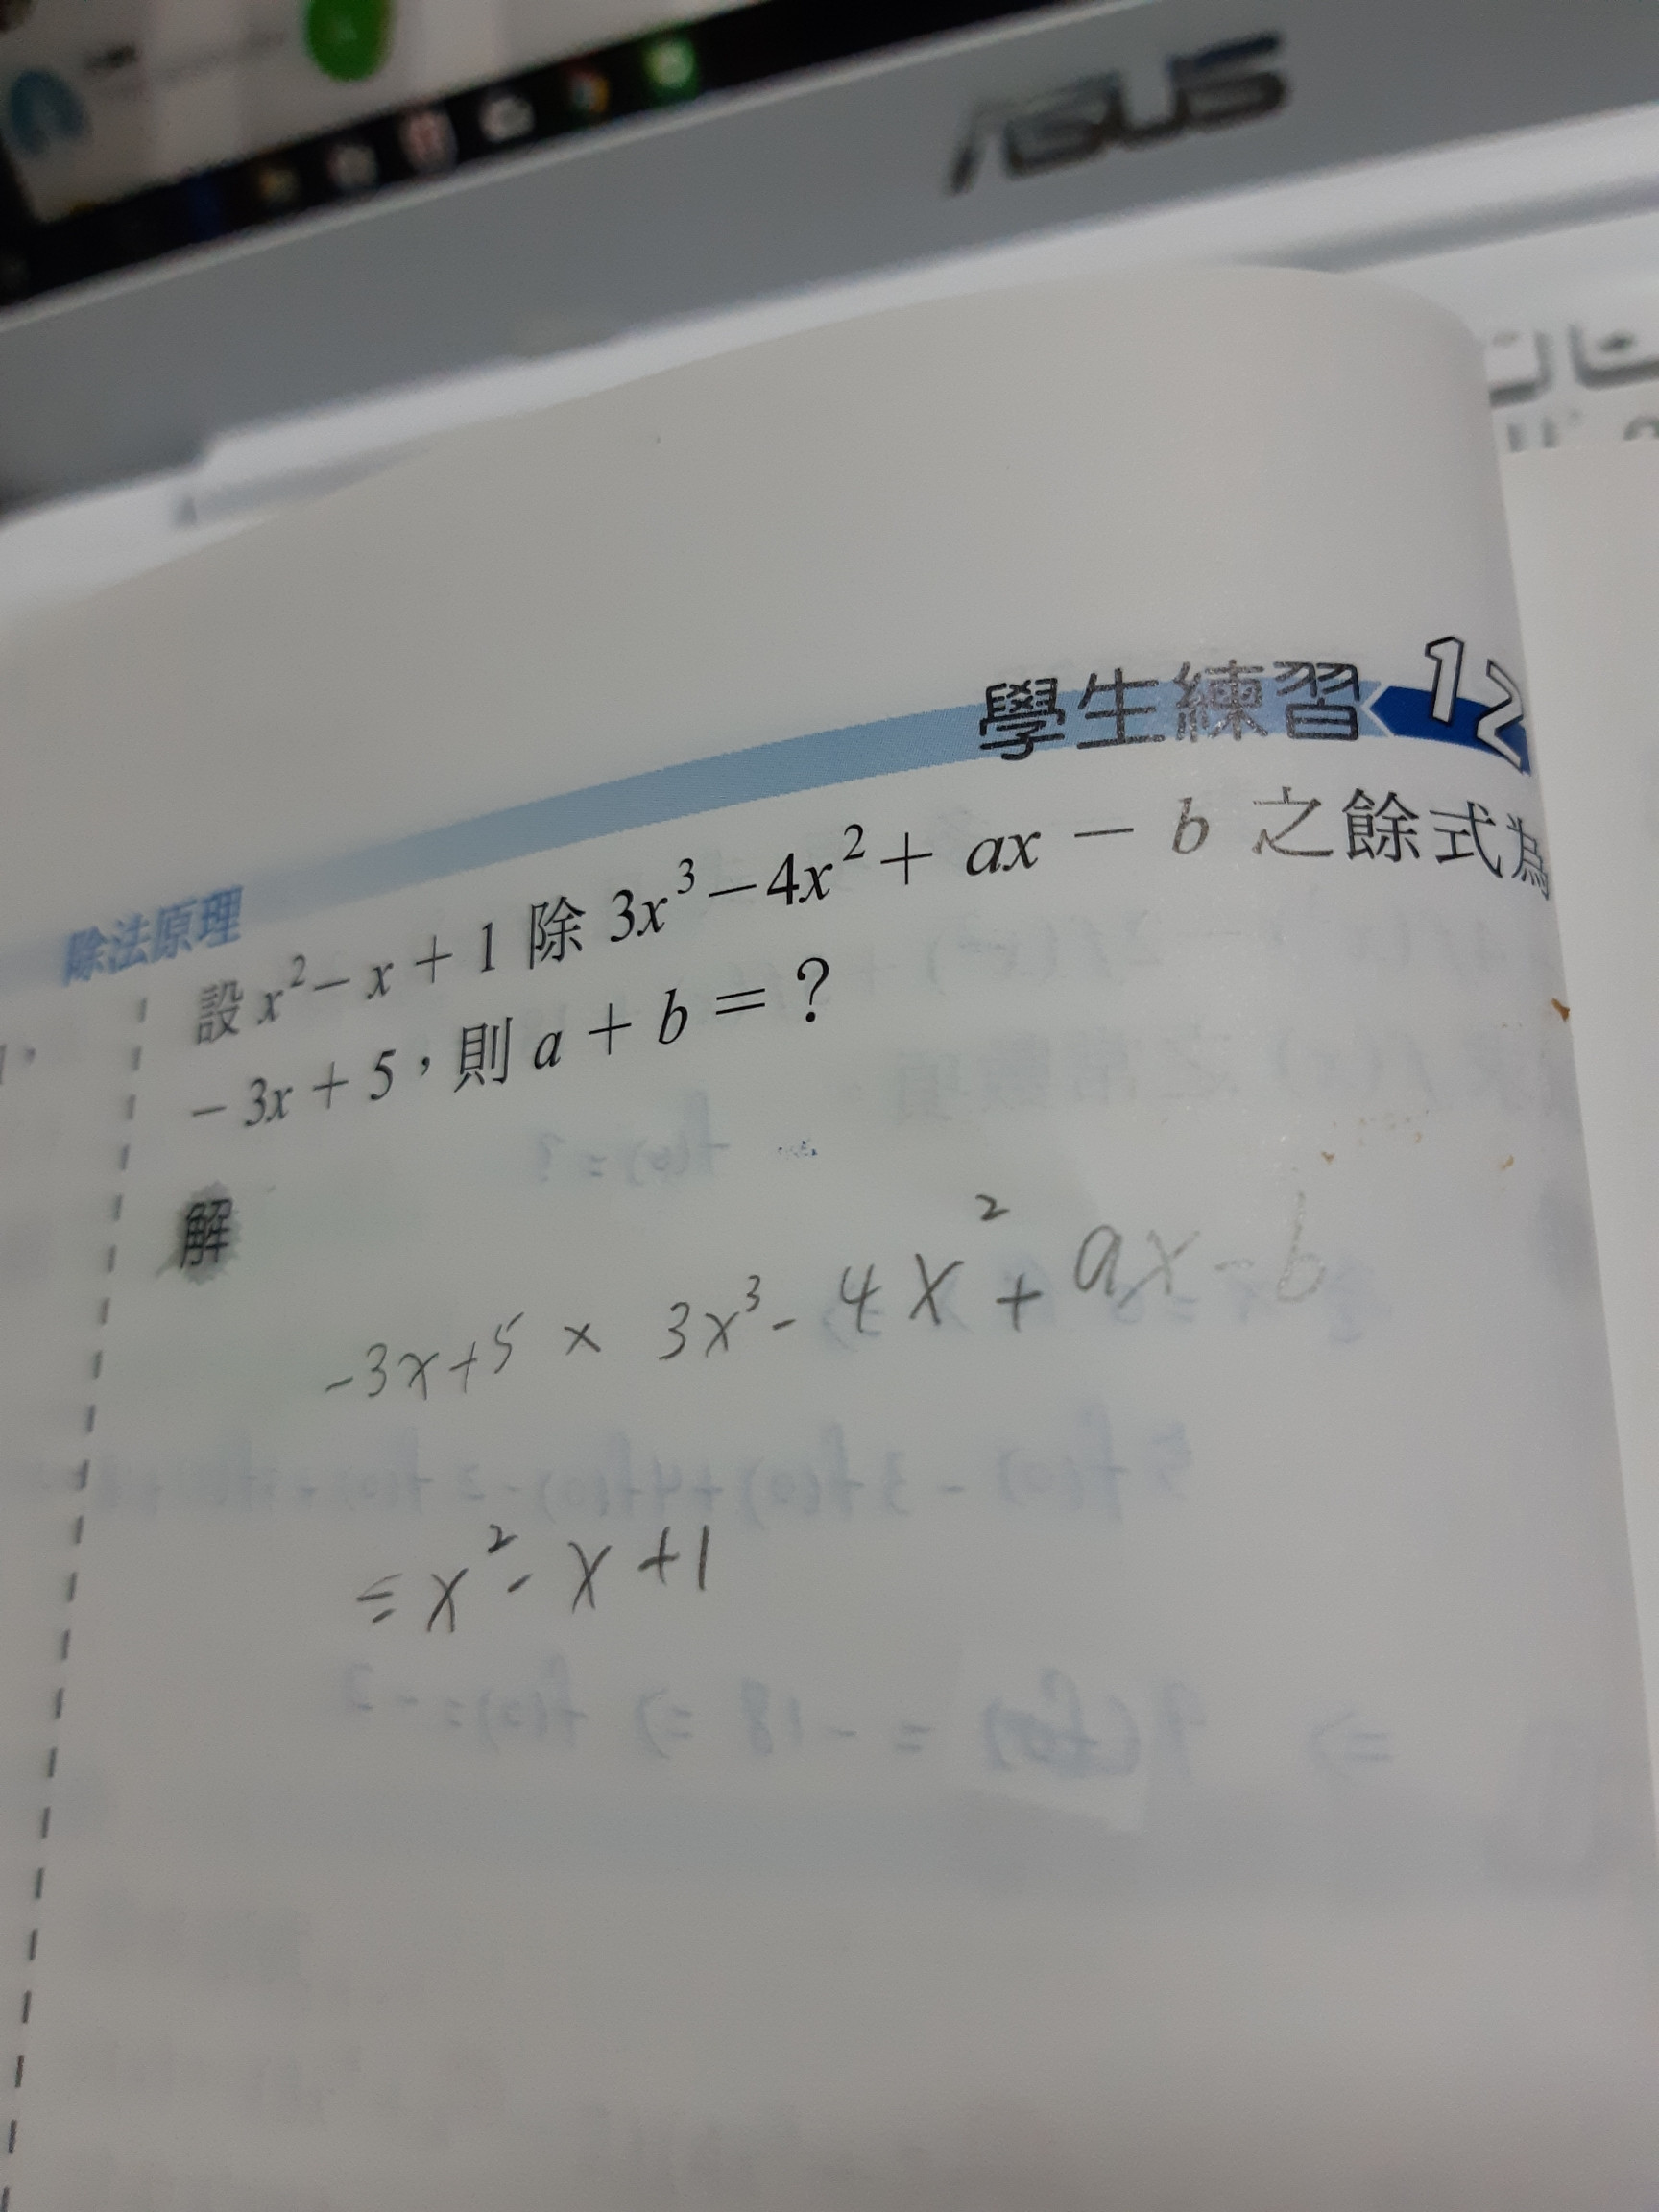 ASUS
學生練習 12
除法原理
設 x²－x＋1 除 3x³－4x²＋ax－b 之餘式為
－3x＋5，則 a＋b＝？
解
-3x+5 × 3x³-4x²+ax-b
=x²-x+1